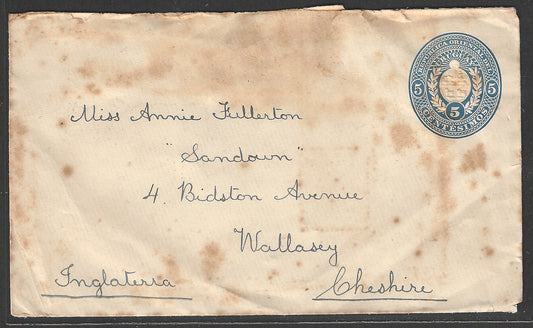 REPUBLICA ORIENTAL DEL
URUGUAY
5 5
5
CENTESIMOS
Miss Annie Fullerton
"Sandown"
4. Bidston Avenue
Wallasey
Inglaterra Cheshire